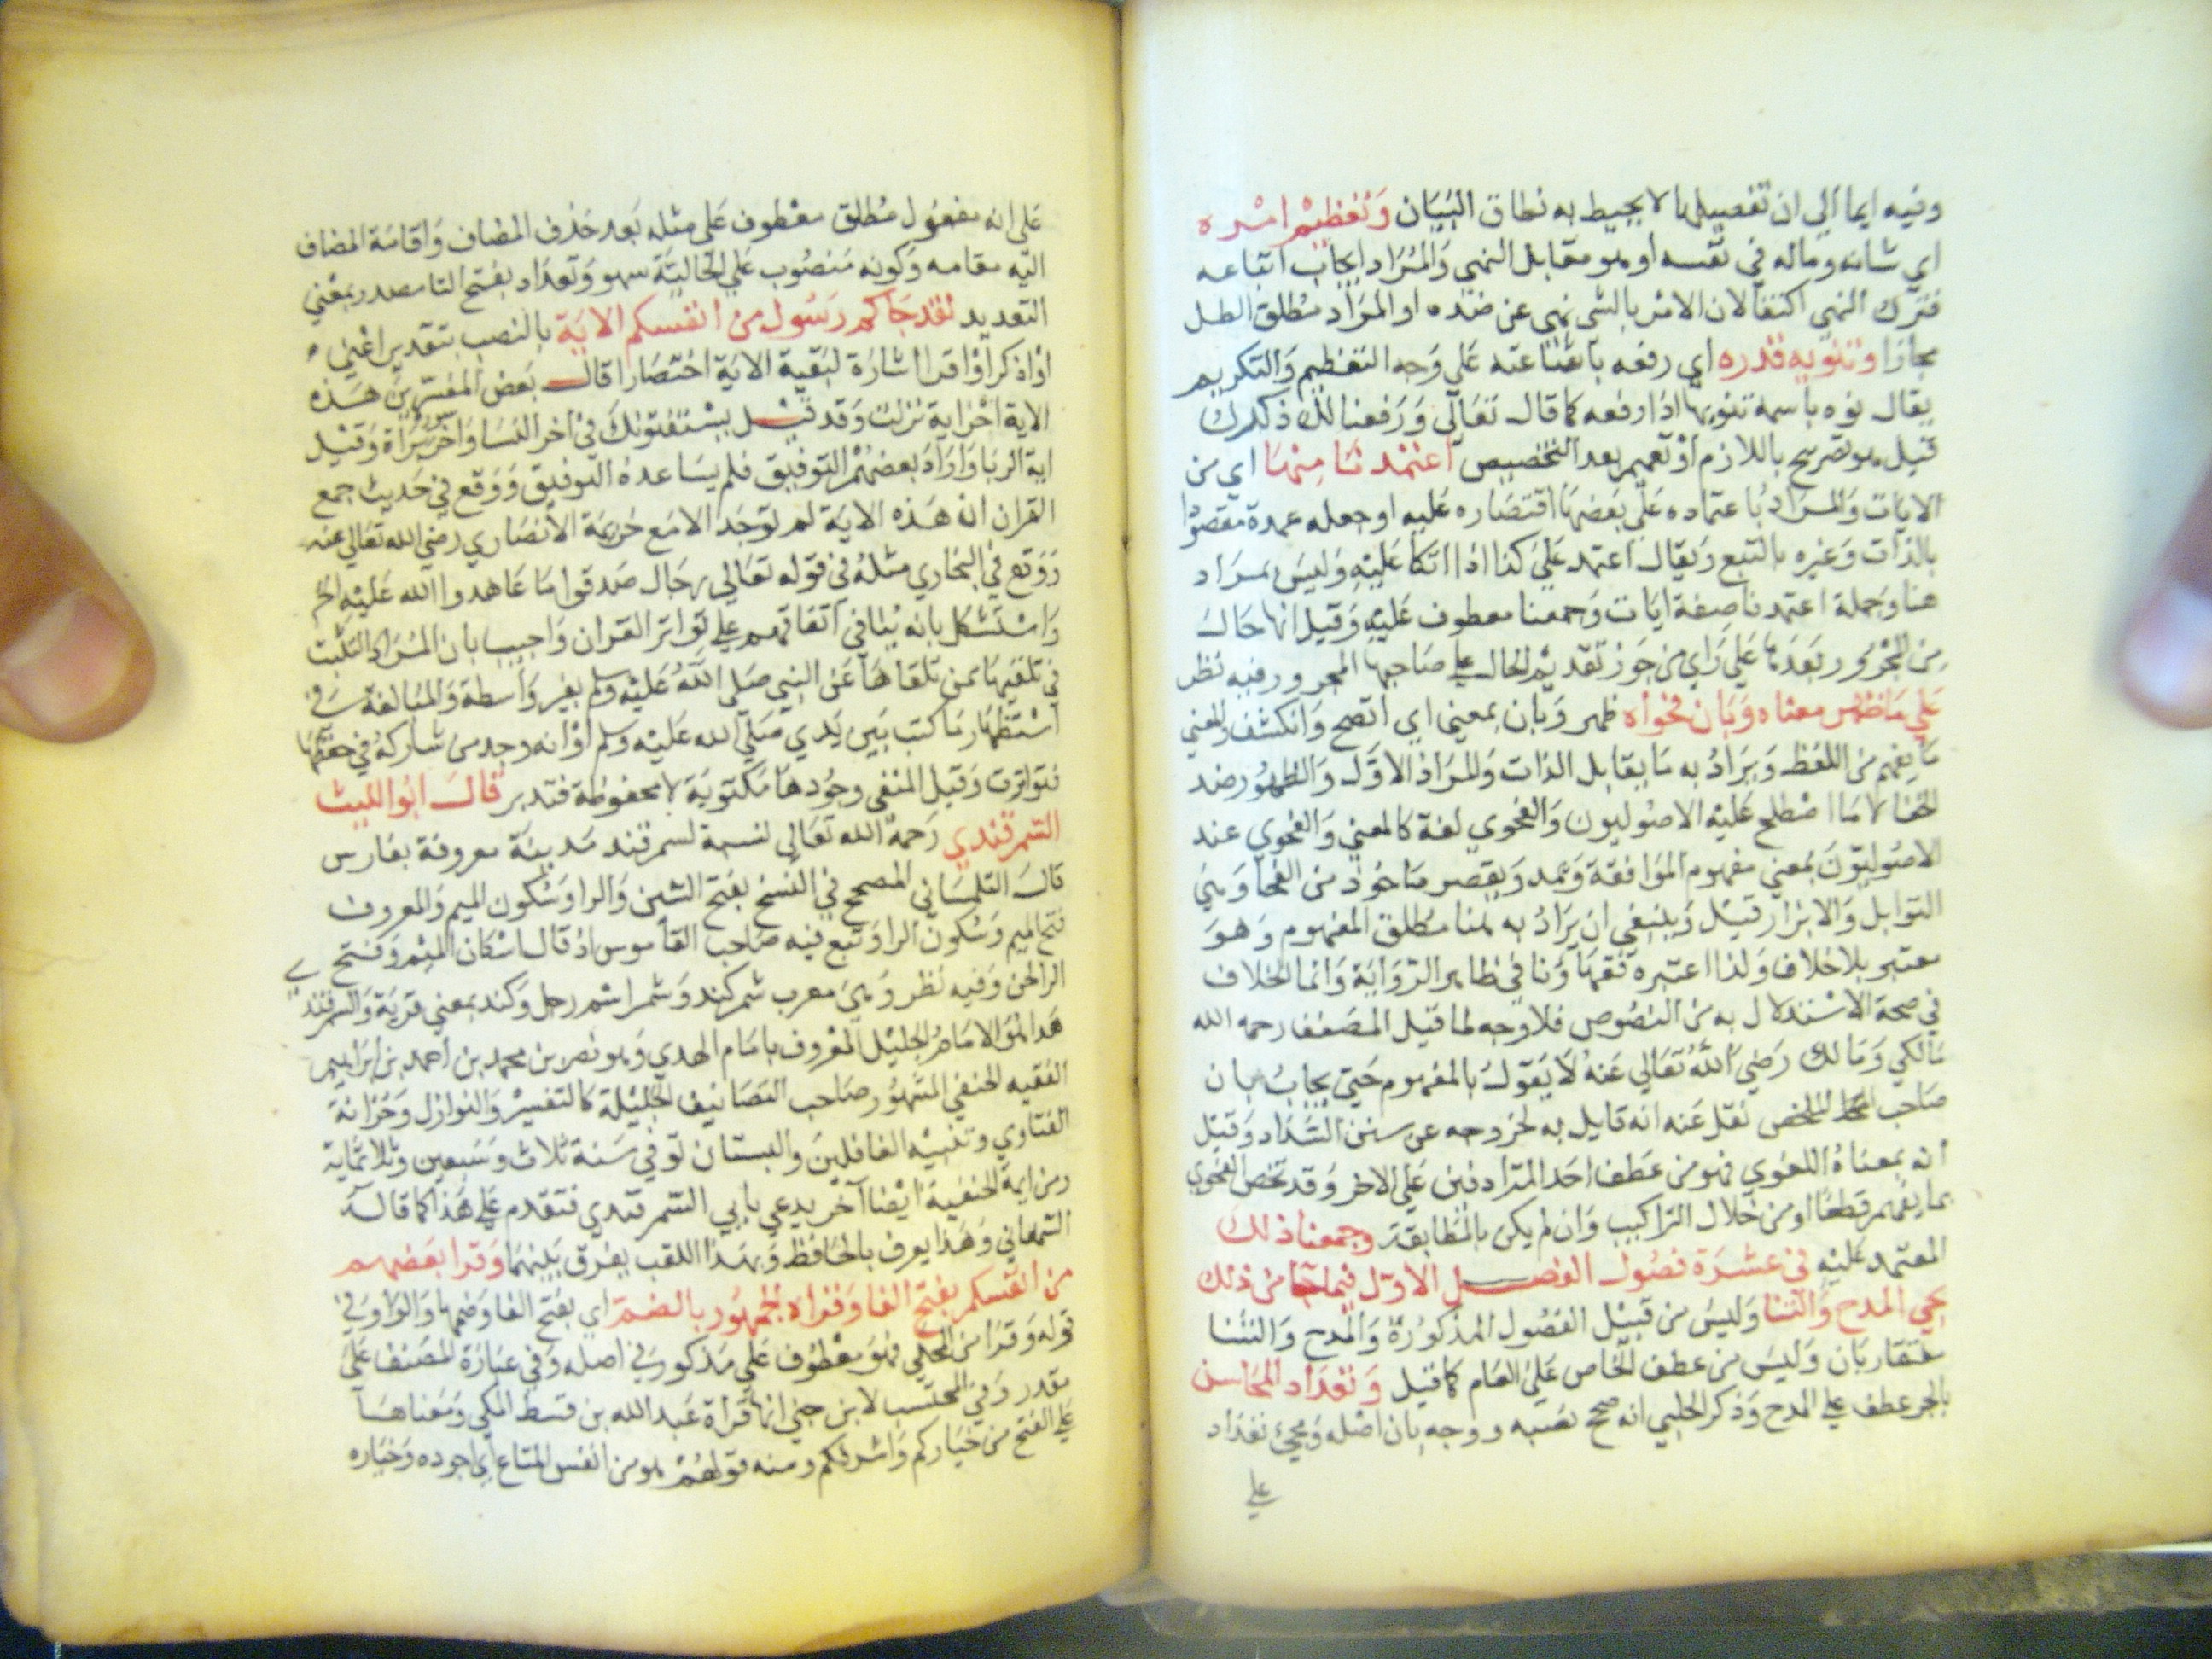 وفيه ايما الي ان تفصيلها لا يحيط به نطاق البيان وتعظيم امره
اي شانه وماله في نفسه او هو مقابل النهي والمراد ايجاب اتباعه
فترك النهي اكتفا لان الامر بالشي نهي عن ضده او المراد مطلق الطلب
مجازا وتنويه قدره اي رفعه باعتنا عته علي وجه التعظيم والتكريم
يقال نوه باسمه تنويها اذا رفعه كما قال تعالي ورفعنا لك ذكرك
قيل هو تصريح باللازم او تعميم بعد التخصيص اعتمدنا منها اي من
الايات والمراد باعتماده علي بعضها اقتصاره عليه او جعله عمدة مقصودا
بالذات وغيره بالتبع ويقال اعتمد علي كذا اذا اتكا عليه وليس بمراد
هنا وجملة اعتمدنا صفة ايات وجمعنا معطوف عليه وقيل انها حال
من المجرور بعدها علي راي من جوز تقديم الحال علي صاحبها المجرور وفيه نظر
علي ما ظهر معناه وبان فحواه ظهر وبان بمعني اي اتضح وانكشف والمعني
ما يفهم من اللفظ ويراد به ما يقابل الذات والمراد الاول والظهور ضد
الخفا لا ما اصطلح عليه الاصوليون والفحوي لغة كالمعني والفحوي عند
الاصوليون بمعني مفهوم الموافقة ويمد ويقصر ماخوذ من الفحا وهي
التوابل والابزار قيل وينبغي ان يراد به هنا مطلق المفهوم وهو
معتبر بلا خلاف ولذا اعتبره فقهاؤنا في ظاهر الرواية وانما الخلاف
في صحة الاستدلال به من النصوص فلا وجه لما قيل المصنف رحمه الله
مالكي ومالك رضي الله تعالي عنه لا يقول بالمفهوم حتي يجاب بان
صاحب الملخص نقل عنه انه قايل به لخروجه عن سنن السداد وقيل
انه بمعناه اللغوي فهو من عطف احد المترادفين علي الاخر وقد تخص الفحوي
بما يفهم قطعا او من خلال التراكيب وان لم يكن بالمطابقة وجمعنا ذلك
المعتمد عليه في عشرة فصول الفصل الاول فيما جا من ذلك
مجي المدح والثنا وليس من قبيل الفصول المذكورة والمدح والثنا
متقاربان وليس من عطف الخاص علي العام كما قيل وتعداد المحاسن
بالجر عطف علي المدح وذكر الحلبي انه صحح نصبه ووجه بان اصله ومجئ تعداد
علي
علي انه مفعول مطلق معطوف علي مثله بعد حذف المضاف واقامة المضاف
اليه مقامه وكونه منصوب علي الحالية سهو وتعداد بفتح التا مصدر بمعني
التعديد لقد جاكم رسول من انفسكم الاية بالنصب بتقدير اعني
او اذكر او اقرا اشارة لبقية الاية اختصارا قال بعض المفسرين هذه
الاية اخر اية نزلت وقد قيل يستفتونك في اخر النسا واخر سورة براة وقيل
اية الربا واراد بعضهم التوفيق فلم يساعده التوفيق ووقع في حديث جمع
القران ان هذه الاية لم توجد الا مع خزيمة الانصاري رضي الله تعالي عنه
ووقع في البخاري مثله في قوله تعالي رجال صدقوا ما عاهدوا الله عليه الخ
واستشكل بانه ينافي اتفاقهم علي تواتر القران واجيب بان المراد التثبت
في تلقيها ممن تلقاها عن النبي صلي الله عليه وسلم بغير واسطة والمبالغة في
استظهار ما كتب بين يدي صلي الله عليه وسلم او انه وجد من شاركه في حفظها
فتواترت وقيل المنفي وجودها مكتوبة لا محفوظة فتدبر قال ابو الليث
السمرقندي رحمه الله تعالي نسبة لسمرقند مدينة معروفة بفارس
قال التلمساني المصحح في النسخ بفتح الشين والرا وسكون الميم والمعروف
فتح الميم وسكون الرا وتبع فيه صاحب القاموس اذ قال اسكان الميم وفتح
الرا لحن وفيه نظر وهي معرب شمركند وشمر اسم رجل وكند بمعني قرية والسمرقندي
هذا هو الامام الجليل المعروف بامام الهدي وهو نصر بن محمد بن احمد بن ابراهيم
الفقيه الحنفي المشهور صاحب التصانيف الجليلة كالتفسير والنوازل وخزانة
الفتاوي وتنبيه الغافلين والبستان توفي سنة ثلاث وسبعين وثلاثماية
ومن ايمة الحنفية ايضا اخر يدعي بابي السمرقندي فتقدم علي هذا كما قاله
السمعاني وهذا يعرف بالحافظ وبهذا اللقب يفرق بينهما وقرا بعضهم
من انفسكم بفتح الفا وقراه الجمهور بالضم اي بفتح الفا وضمها والواو في
قوله وقرا من المحلي فهو معطوف علي مذكور في اصله وفي عبارة المصنف علي
مقدر وفي المحتسب لابن جني انها قراة عبد الله بن قسط المكي ومعناها
علي الفتح من خياركم واشرفكم ومنه قولهم هو من انفس المتاع اي اجوده وخياره